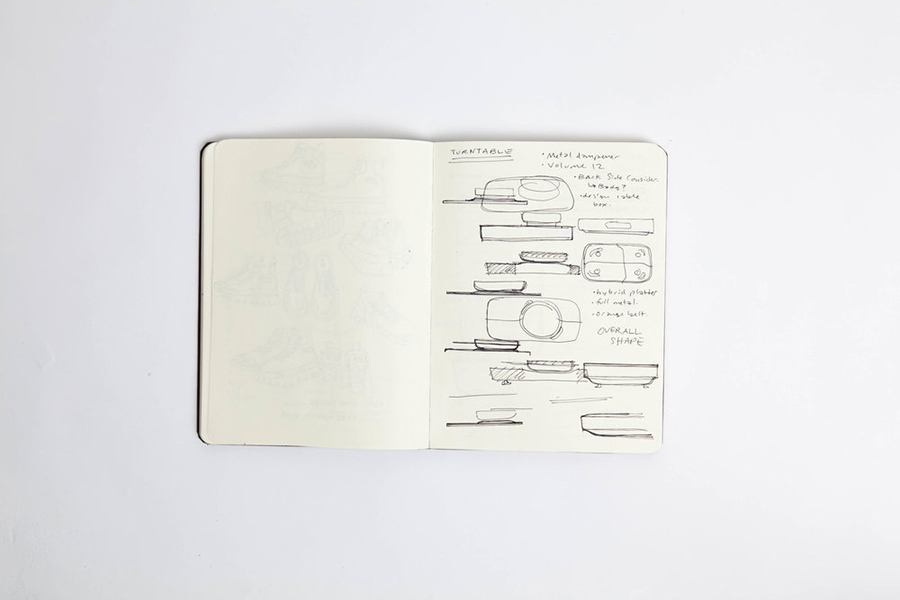 TURNTABLE
• Metal dampener
• Volume 12
• BACK Side Consider.
• design cable
box.
• hybrid platter
• full metal.
• orange belt.
OVERALL
SHAPE